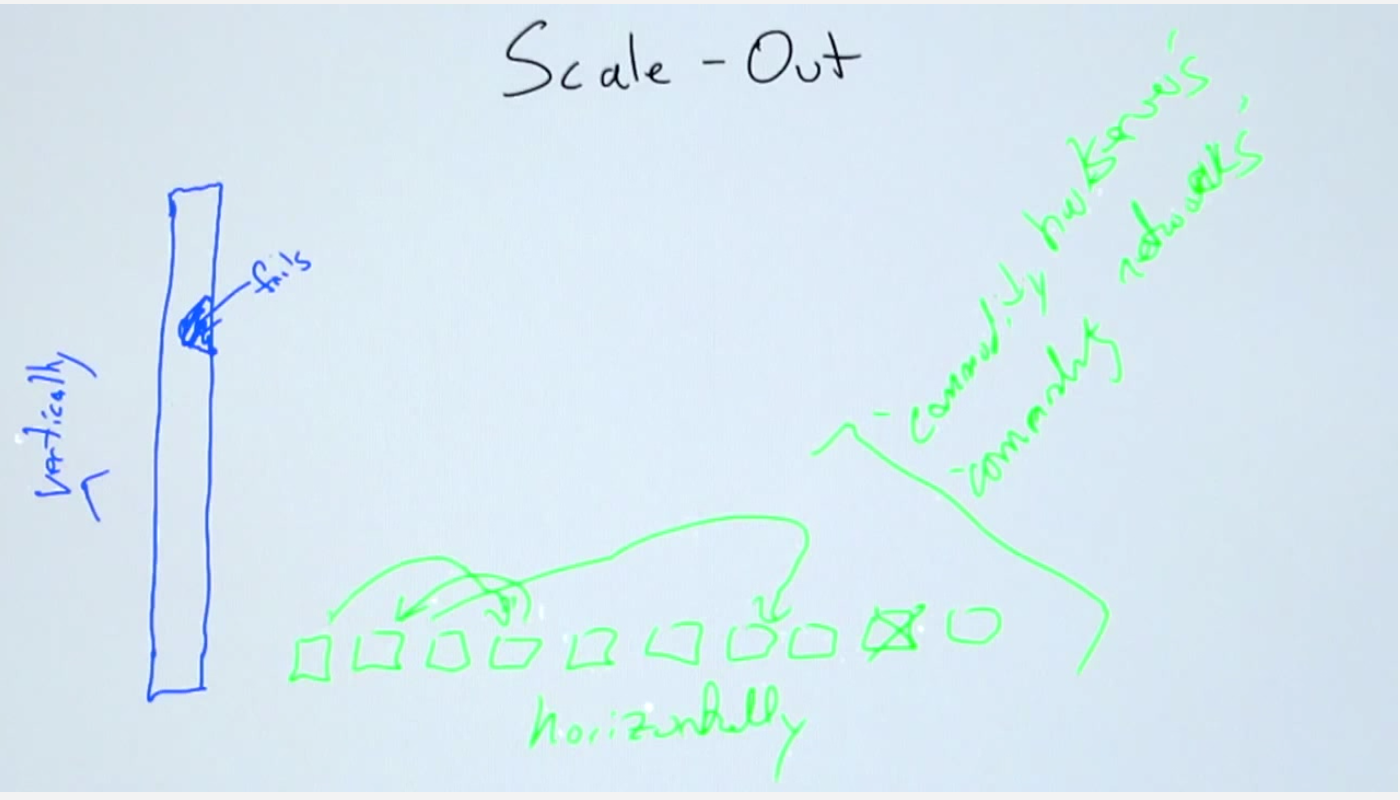 Scale - Out
fails
vertically
- commodity
- commodity networks
horizontally